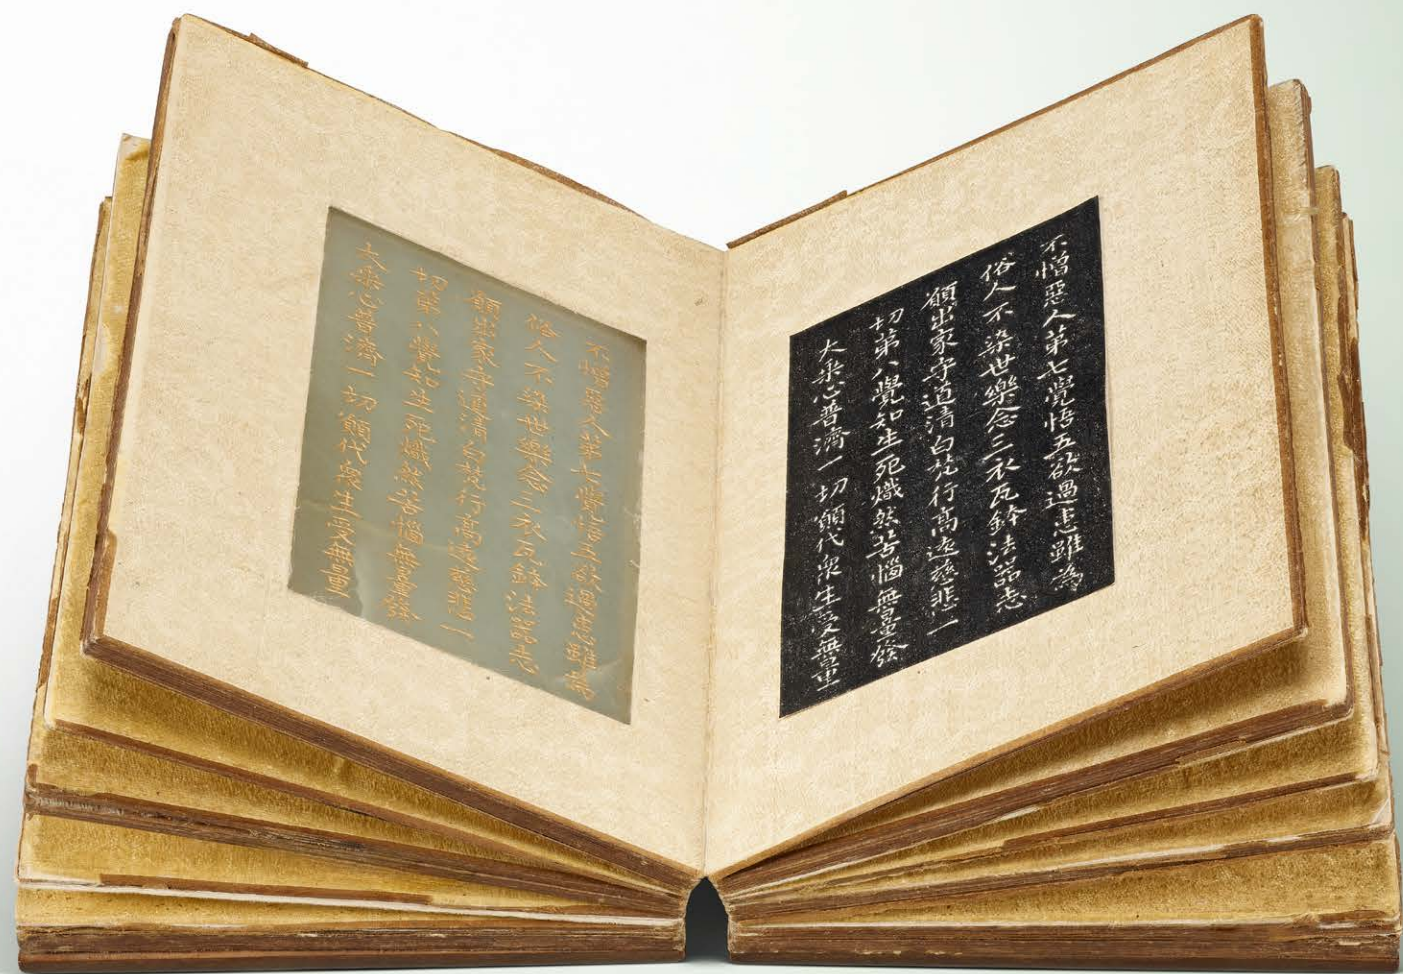 不憎惡人第七覺悟五欲過患雖為
俗人不染世樂念三衣瓦鉢法器志
願出家守道清白梵行高遠慈悲一
切第八覺知生死熾然苦惱無量發
大乘心普濟一切願代衆生受無量
不憎惡人第七覺悟五欲過患雖為
俗人不染世樂念三衣瓦鉢法器志
願出家守道清白梵行高遠慈悲一
切第八覺知生死熾然苦惱無量發
大乘心普濟一切願代衆生受無量